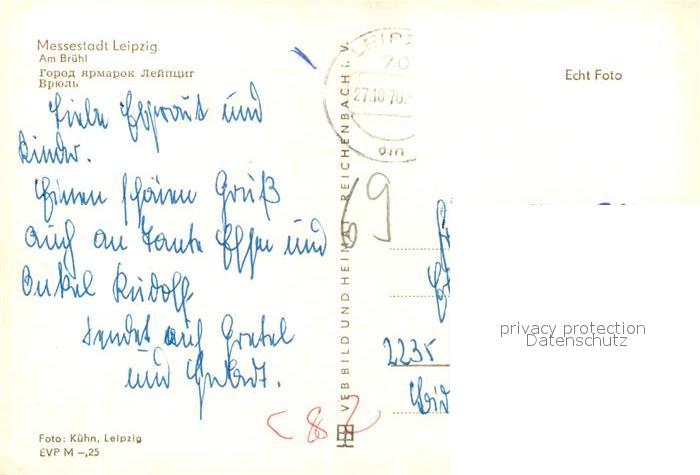 Messestadt Leipzig
Am Brühl
Город ярмарок Лейпциг
Брюль
Echt Foto
LEIPZ
70
27.10.70.
Liebe und
Kinder.
Einen schönen Gruß
auch an Tante Ellen und
Onkel Rudolf,
sendet auch Gretel
und
69
VEB BILD UND HEIMAT REICHENBACH i. V.
2235
privacy protection
Datenschutz
Foto: Kühn, Leipzig
EVP M –,25